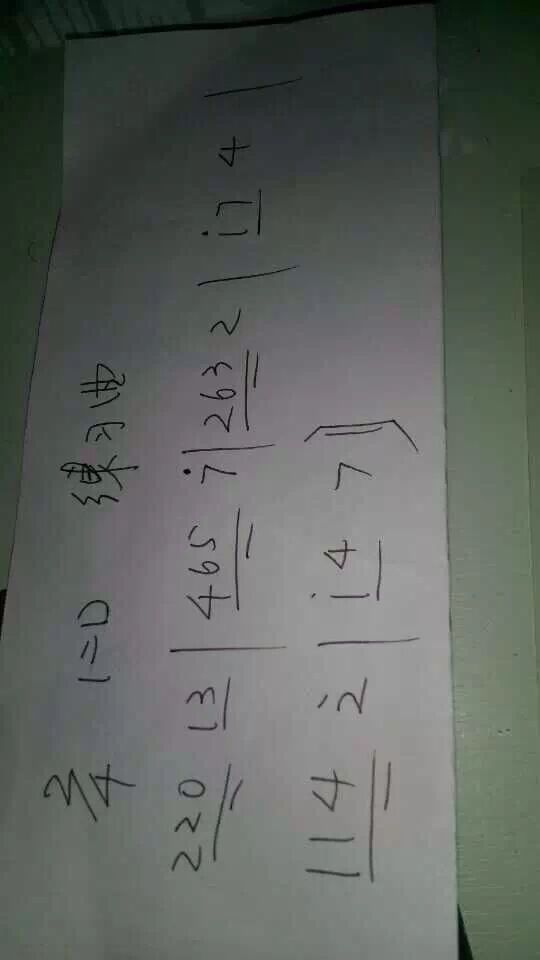 2/4 1=D 练习曲
220 13 | 465 i7 | 263 2 | i7 4 |
114 2̇ | i4 7 ‖